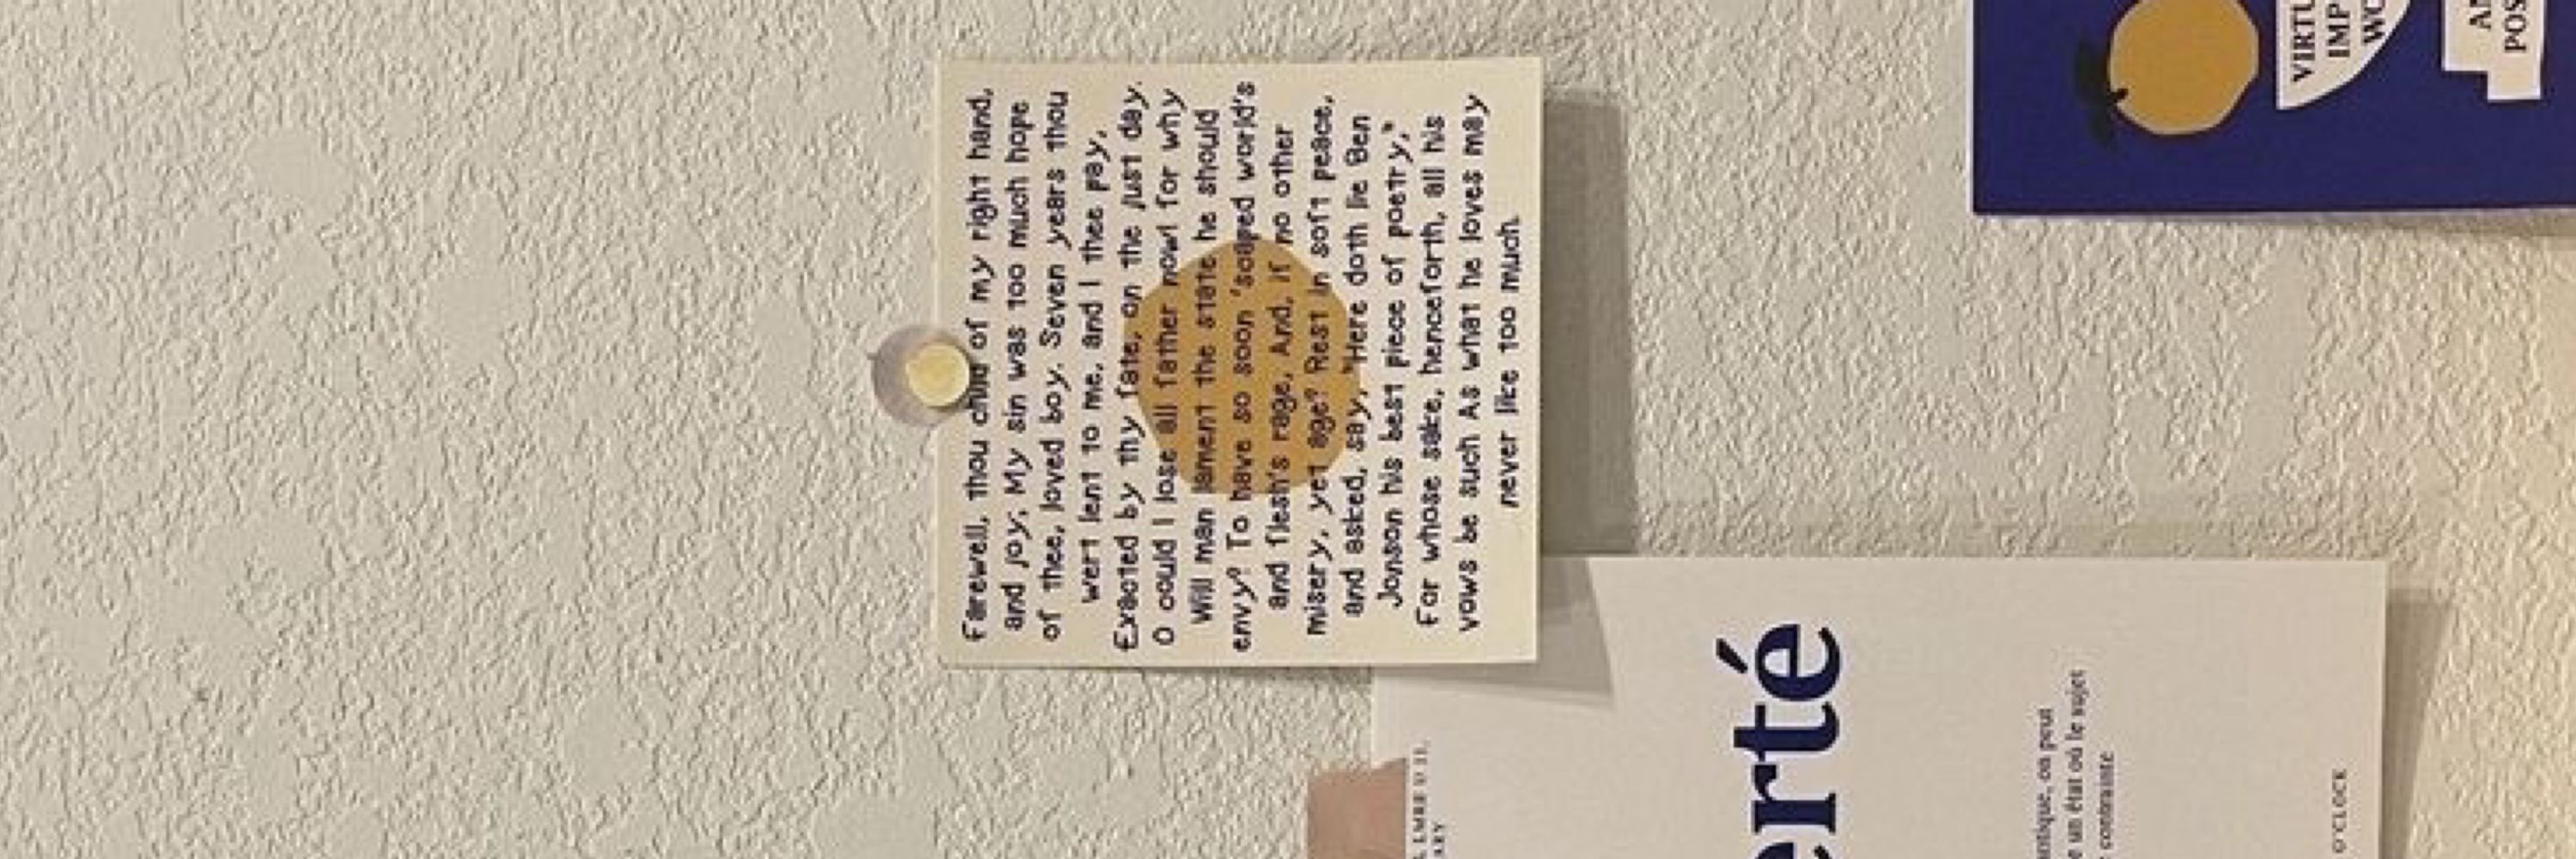 Farewell, thou child of my right hand,
and joy; My sin was too much hope
of thee, loved boy. Seven years thou
wert lent to me, and I thee pay,
Exacted by thy fate, on the just day.
O could I lose all father now! for why
Will man lament the state he should
envy? To have so soon 'scaped world's
and flesh's rage, And, if no other
misery, yet age? Rest in soft peace,
and asked, say, "Here doth lie Ben
Jonson his best piece of poetry,"
For whose sake, henceforth, all his
vows be such As what he loves may
never like too much.
erté
on peut
un état où le sujet
contrainte
O'CLOCK
VIRTU
IMP
WO
AN
POS